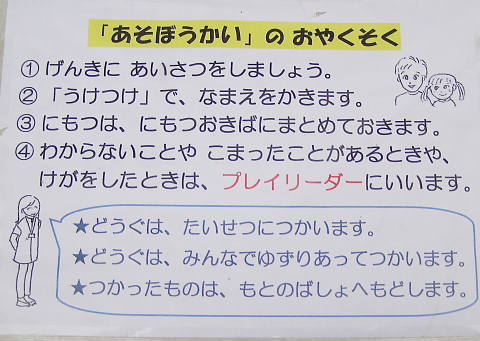 「あそぼうかい」の おやくそく
① げんきに あいさつをしましょう。
② 「うけつけ」で、なまえをかきます。
③ にもつは、にもつおきばにまとめておきます。
④ わからないことや こまったことがあるときや、
けがをしたときは、プレイリーダーにいいます。
★どうぐは、たいせつにつかいます。
★どうぐは、みんなでゆずりあってつかいます。
★つかったものは、もとのばしょへもどします。